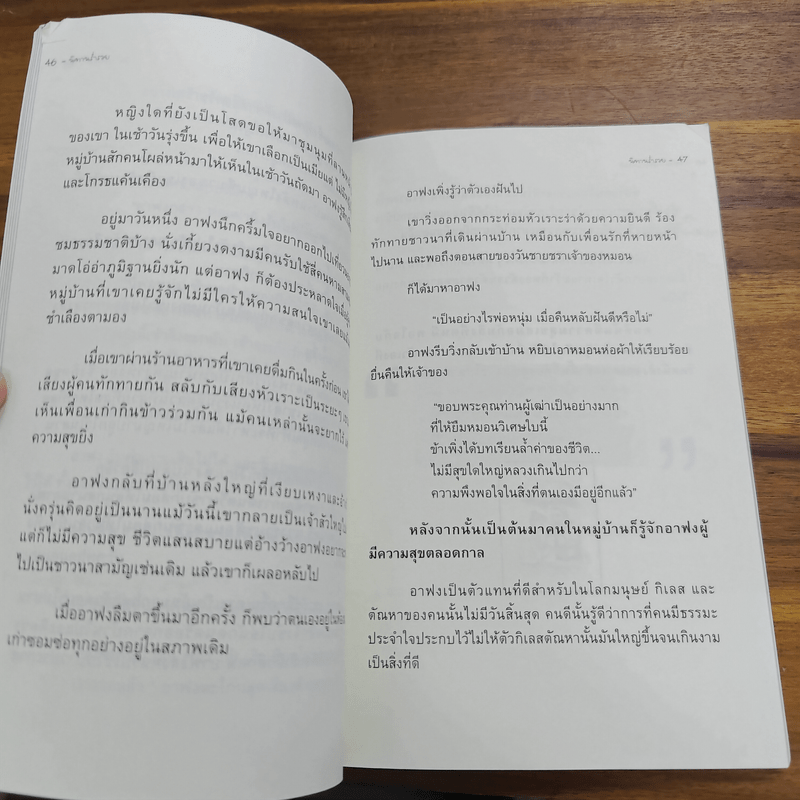 46 -
หญิงใดที่ยังเป็นโสดขอให้มาชุมนุมที่ลาน
ของเขา ในเช้าวันรุ่งขึ้น เพื่อให้เขาเลือกเป็นเมียแต่
หมู่บ้านสักคนโผล่หน้ามาให้เห็นในเช้าวันถัดมา อาฟง
และโกรธแค้นเคือง
อยู่มาวันหนึ่ง อาฟงนึกครึ้มใจอยากออกไปเที่ยว
ชมธรรมชาติบ้าง นั่งเกี้ยวงดงามมีคนรับใช้สี่คนหาม
มาดโอ่อ่าภูมิฐานยิ่งนัก แต่อาฟง ก็ต้องประหลาดใจเมื่อ
หมู่บ้านที่เขาเคยรู้จักไม่มีใครให้ความสนใจเขาเลย
ชำเลืองตามอง
เมื่อเขาผ่านร้านอาหารที่เขาเคยดื่มกินในครั้งก่อน
เสียงผู้คนทักทายกัน สลับกับเสียงหัวเราะเป็นระยะๆ
เห็นเพื่อนเก่ากินข้าวร่วมกัน แม้คนเหล่านั้นจะยากไร้
ความสุขยิ่ง
อาฟงกลับที่บ้านหลังใหญ่ที่เงียบเหงาและ
นั่งครุ่นคิดอยู่เป็นนานแม้วันนี้เขากลายเป็นเจ้าสัวใหญ่
แต่ก็ไม่มีความสุข ชีวิตแสนสบายแต่อ้างว้างอาฟงอยาก
ไปเป็นชาวนาสามัญเช่นเดิม แล้วเขาก็เผลอหลับไป
เมื่ออาฟงลืมตาขึ้นมาอีกครั้ง ก็พบว่าตนเองอยู่ใน
เก่าซอมซ่อทุกอย่างอยู่ในสภาพเดิม
- 47
อาฟงเพิ่งรู้ว่าตัวเองฝันไป
เขาวิ่งออกจากกระท่อมหัวเราะร่าด้วยความยินดี ร้อง
ทักทายชาวนาที่เดินผ่านบ้าน เหมือนกับเพื่อนรักที่หายหน้า
ไปนาน และพอถึงตอนสายของวันชายชราเจ้าของหมอน
ก็ได้มาหาอาฟง
“เป็นอย่างไรพ่อหนุ่ม เมื่อคืนหลับฝันดีหรือไม่”
อาฟงรีบวิ่งกลับเข้าบ้าน หยิบเอาหมอนห่อผ้าให้เรียบร้อย
ยื่นคืนให้เจ้าของ
“ขอบพระคุณท่านผู้เฒ่าเป็นอย่างมาก
ที่ให้ยืมหมอนวิเศษใบนี้
ข้าเพิ่งได้บทเรียนล้ำค่าของชีวิต...
ไม่มีสุขใดใหญ่หลวงเกินไปกว่า
ความพึงพอใจในสิ่งที่ตนเองมีอยู่อีกแล้ว”
หลังจากนั้นเป็นต้นมาคนในหมู่บ้านก็รู้จักอาฟงผู้
มีความสุขตลอดกาล
อาฟงเป็นตัวแทนที่ดีสำหรับในโลกมนุษย์ กิเลส และ
ตัณหาของคนนั้นไม่มีวันสิ้นสุด คนดีนั้นรู้ดีว่าการที่คนมีธรรมะ
ประจำใจประกบไว้ไม่ให้ตัวกิเลสตัณหานั้นมันใหญ่ขึ้นจนเกินงาม
เป็นสิ่งที่ดี